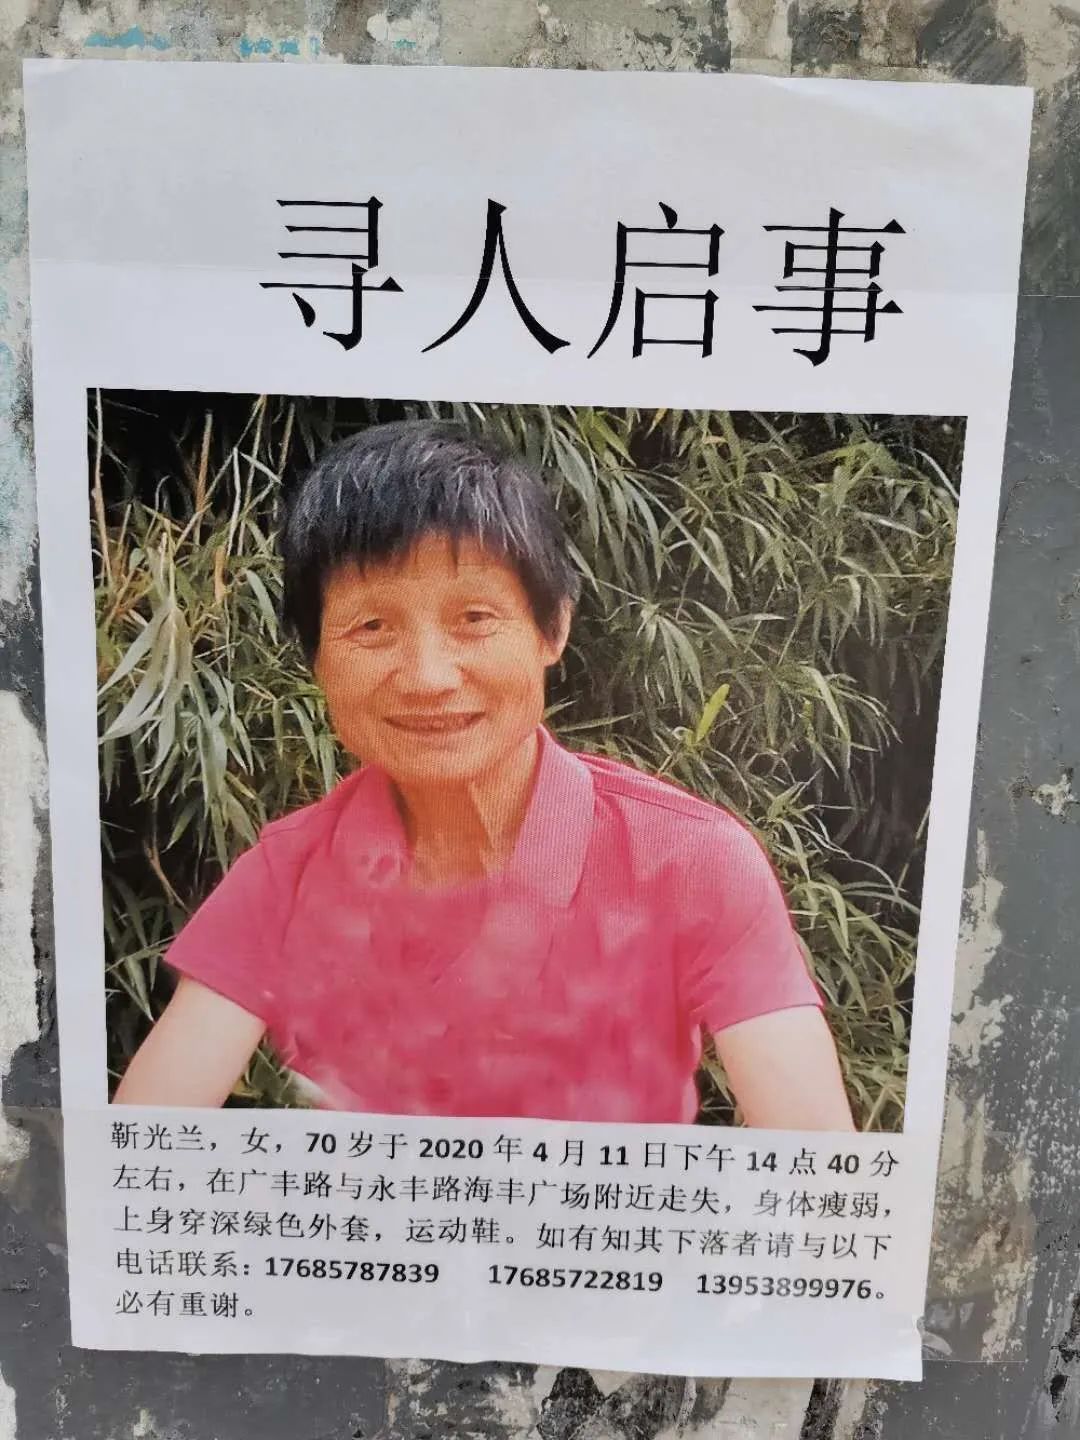 寻人启事
靳光兰，女，70 岁于 2020 年 4 月 11 日下午 14 点 40 分
左右，在广丰路与永丰路海丰广场附近走失，身体瘦弱，
上身穿深绿色外套，运动鞋。如有知其下落者请与以下
电话联系：17685787839 17685722819 13953899976。
必有重谢。